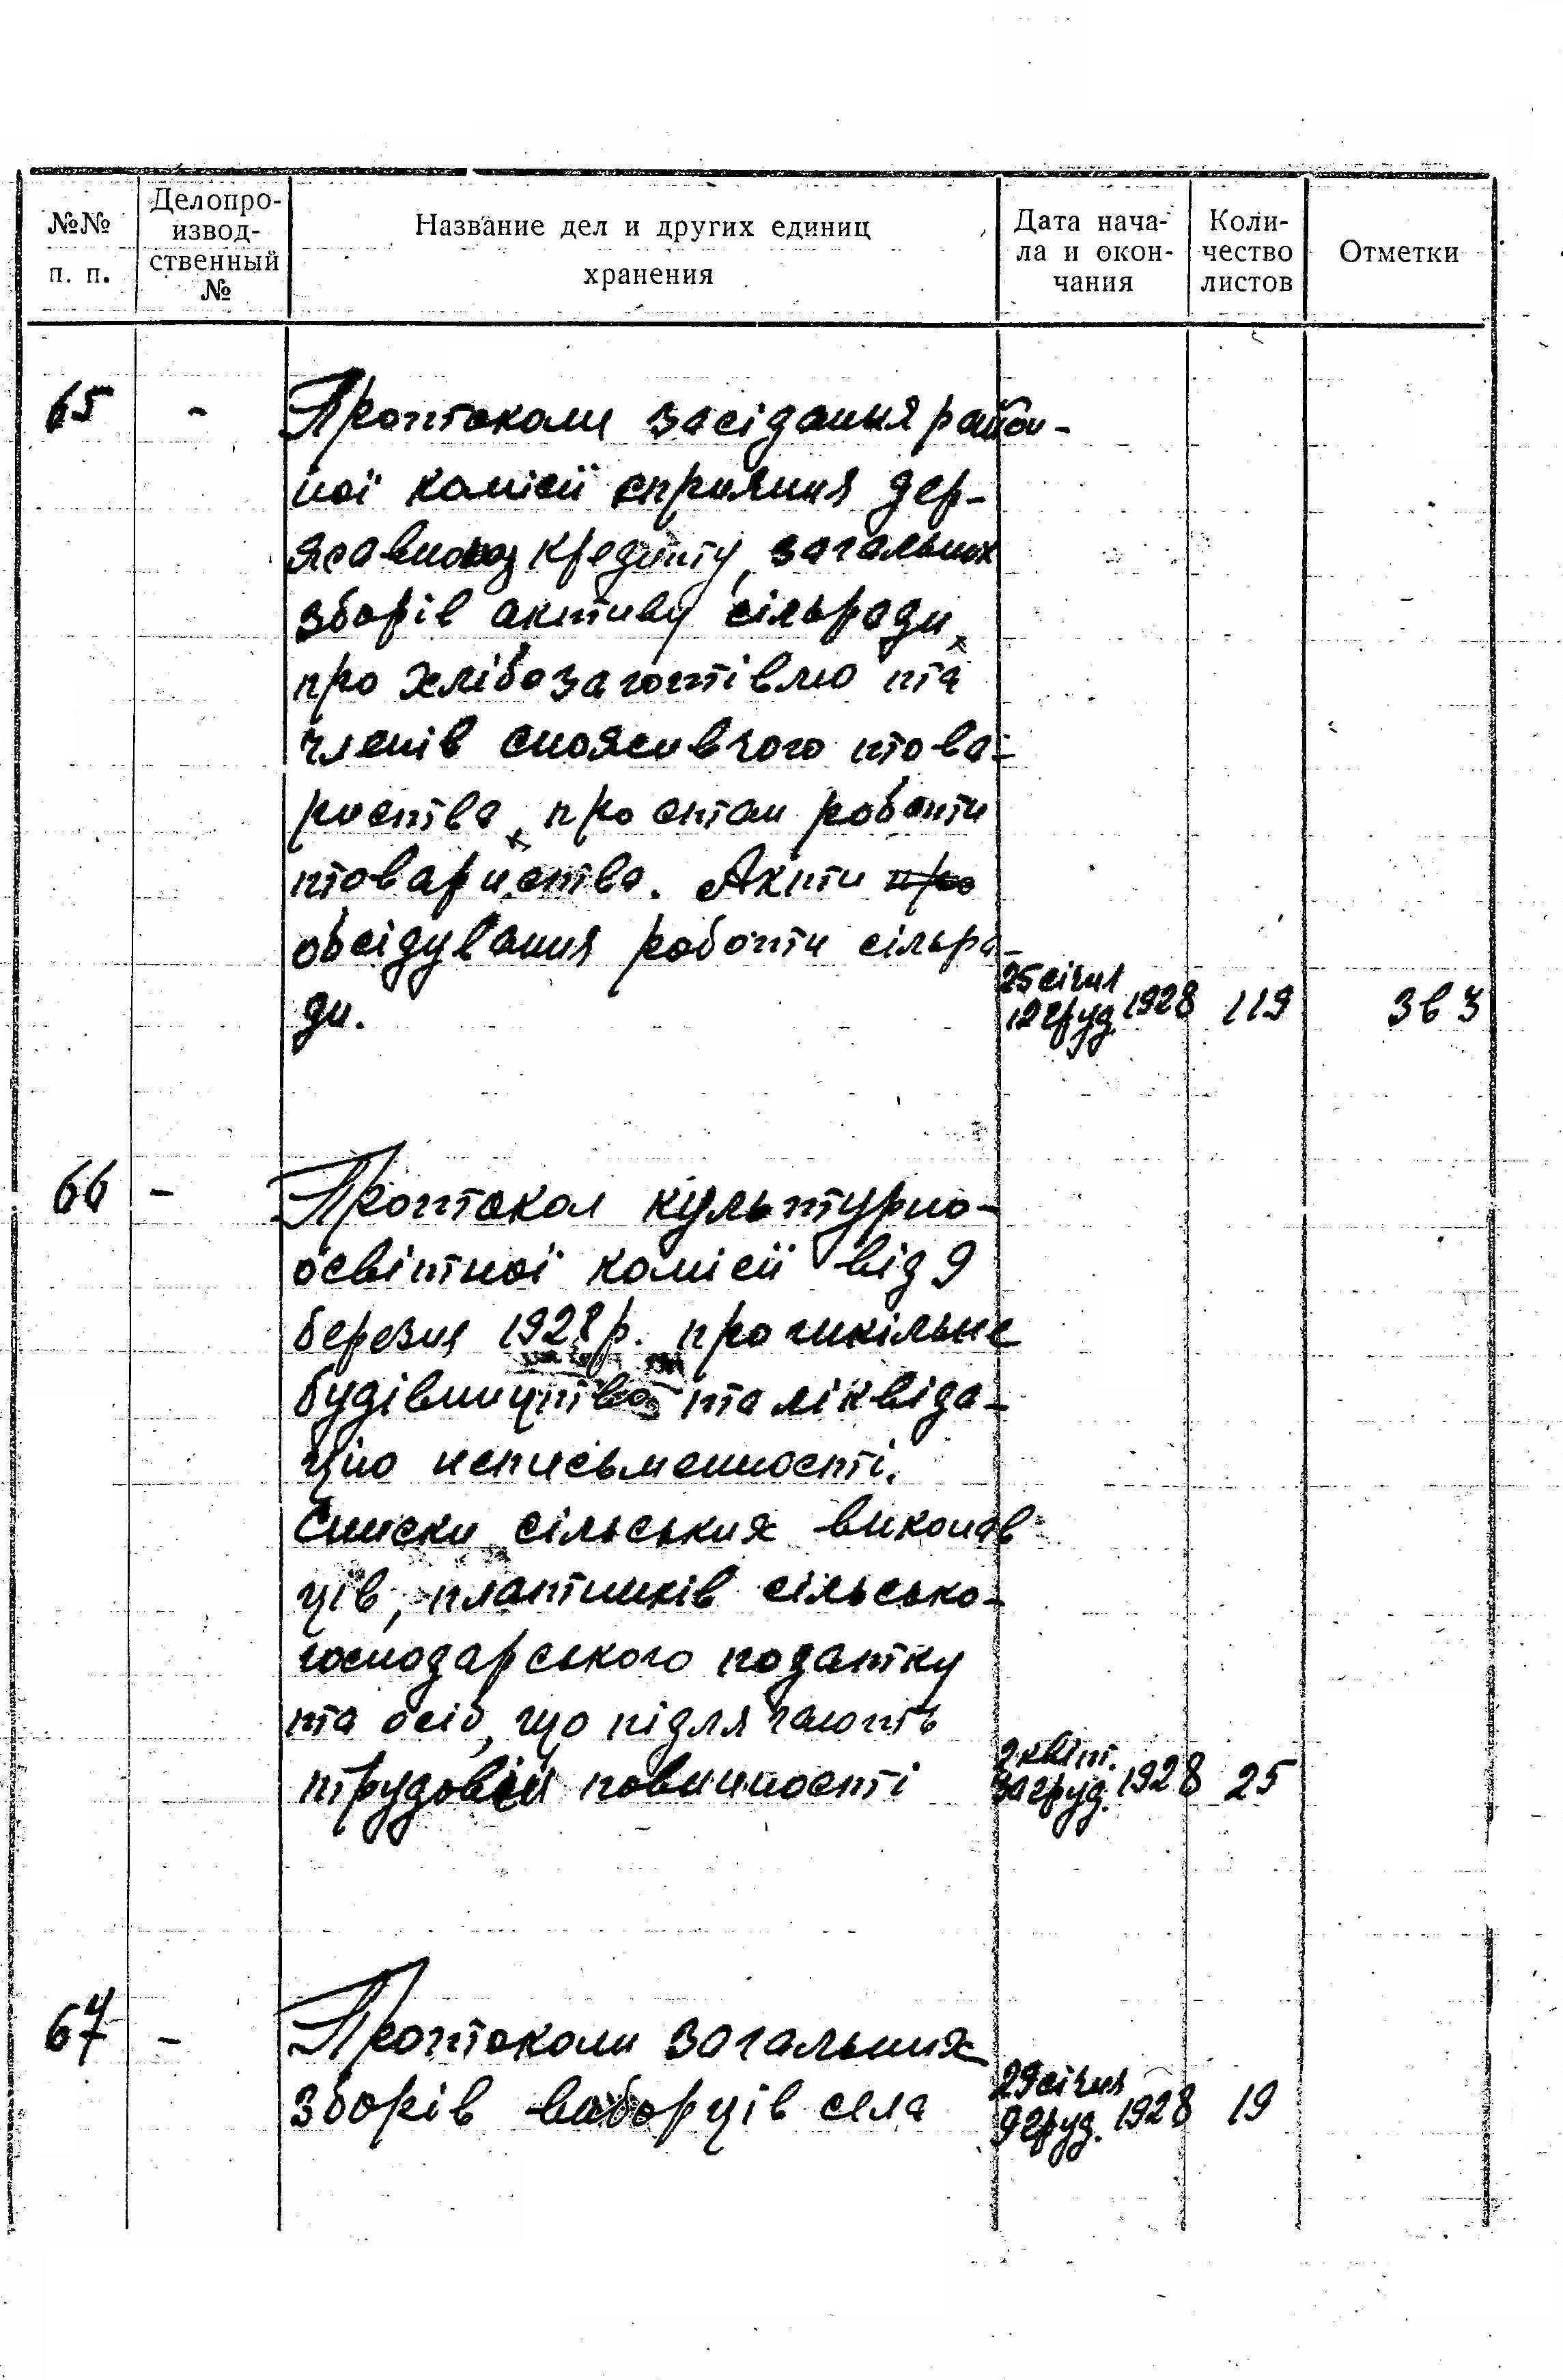 №№ п. п.
Делопро-
извод-
ственный
№
Название дел и других единиц
хранения
Дата нача-
ла и окон-
чания
Коли-
чество
листов
Отметки
65 - Протоколи засідання район-
ної комісії сприяння дер-
жавному кредиту, загальних
зборів активу сільради
про хлібозаготівлю та
членів споживчого това-
риства, про стан роботи
товариства. Акти про
обсідування роботи сільра-
ди.
25 січня
12 груд. 1928 119
66 - Протокол культурно-
освітньої комісії від 9
березня 1928 р. про шкільне
будівництво та ліквіда-
цію неписьменності.
Списки сільських виконав
ців, платників сільсько-
господарського податку
та осіб, що підлягають
трудовій повинності
2 квіт.
30 груд. 1928 25
67 - Протоколи загальних
зборів виборців села
29 січня
9 груд. 1928 19